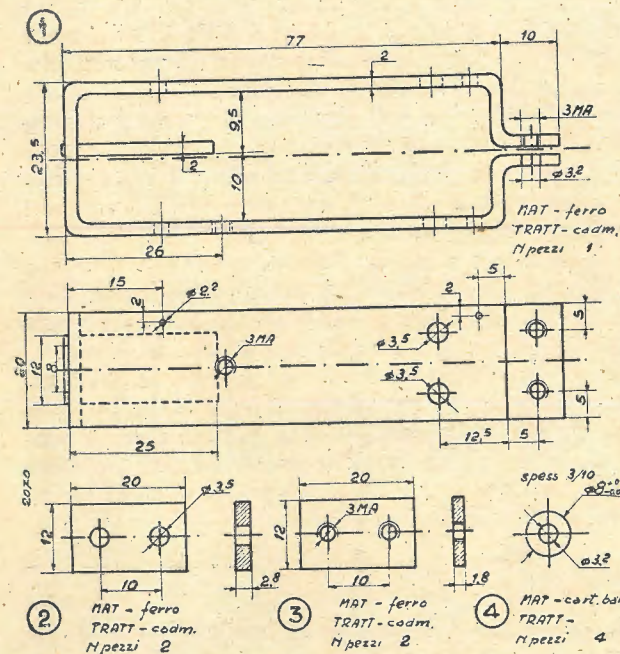 1
77
10
2
3MA
9,5
23,5
2
10
ø3,2
26
MAT - ferro
TRATT - cadm.
N pezzi 1
15
ø2,2
2
2
5
5
3MA
ø3,5
20
12
8
ø3,5
25
12,5
5
5
20
ø3,5
12
10
2,8
2
MAT - ferro
TRATT - cadm.
N pezzi 2
20
3MA
12
10
1,8
3
MAT - ferro
TRATT - cadm.
N pezzi 2
spess 3/10
ø3,2
4
TRATT -
N pezzi 4